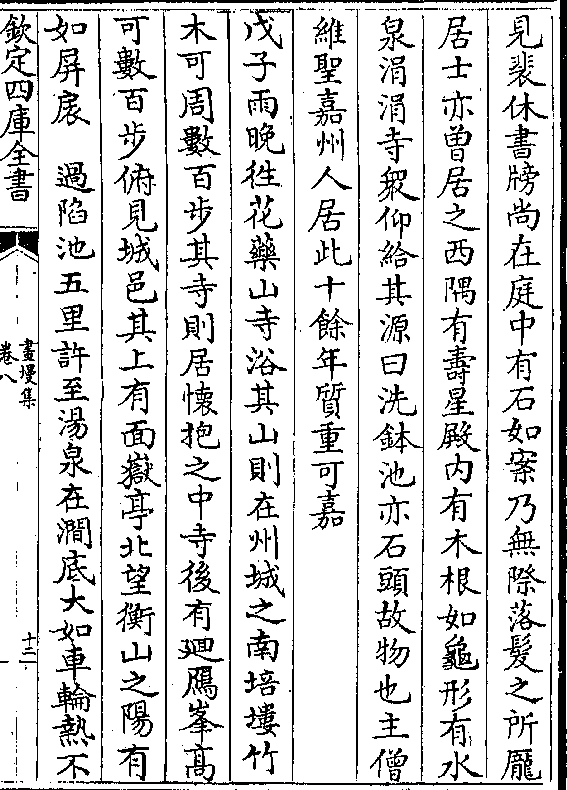 見裴休書牓尚在庭中有石如案乃無際落髪之所龎
居士亦曽居之西隅有壽星殿内有木根如龜形有水
泉涓涓寺衆仰給其源曰洗鉢池亦石頭故物也主僧
維聖嘉州人居此十餘年質重可嘉
戊子雨晚徃花藥山寺浴其山則在州城之南培塿竹
木可周數百步其寺則居懐抱之中寺後有廻鴈峯髙
可數百步俯見城邑其上有面嶽亭北望衡山之陽有
如屏扆　過陷池五里許至湯泉在澗底大如車輪熱不
欽定四庫全書
畫墁集
卷八
十二